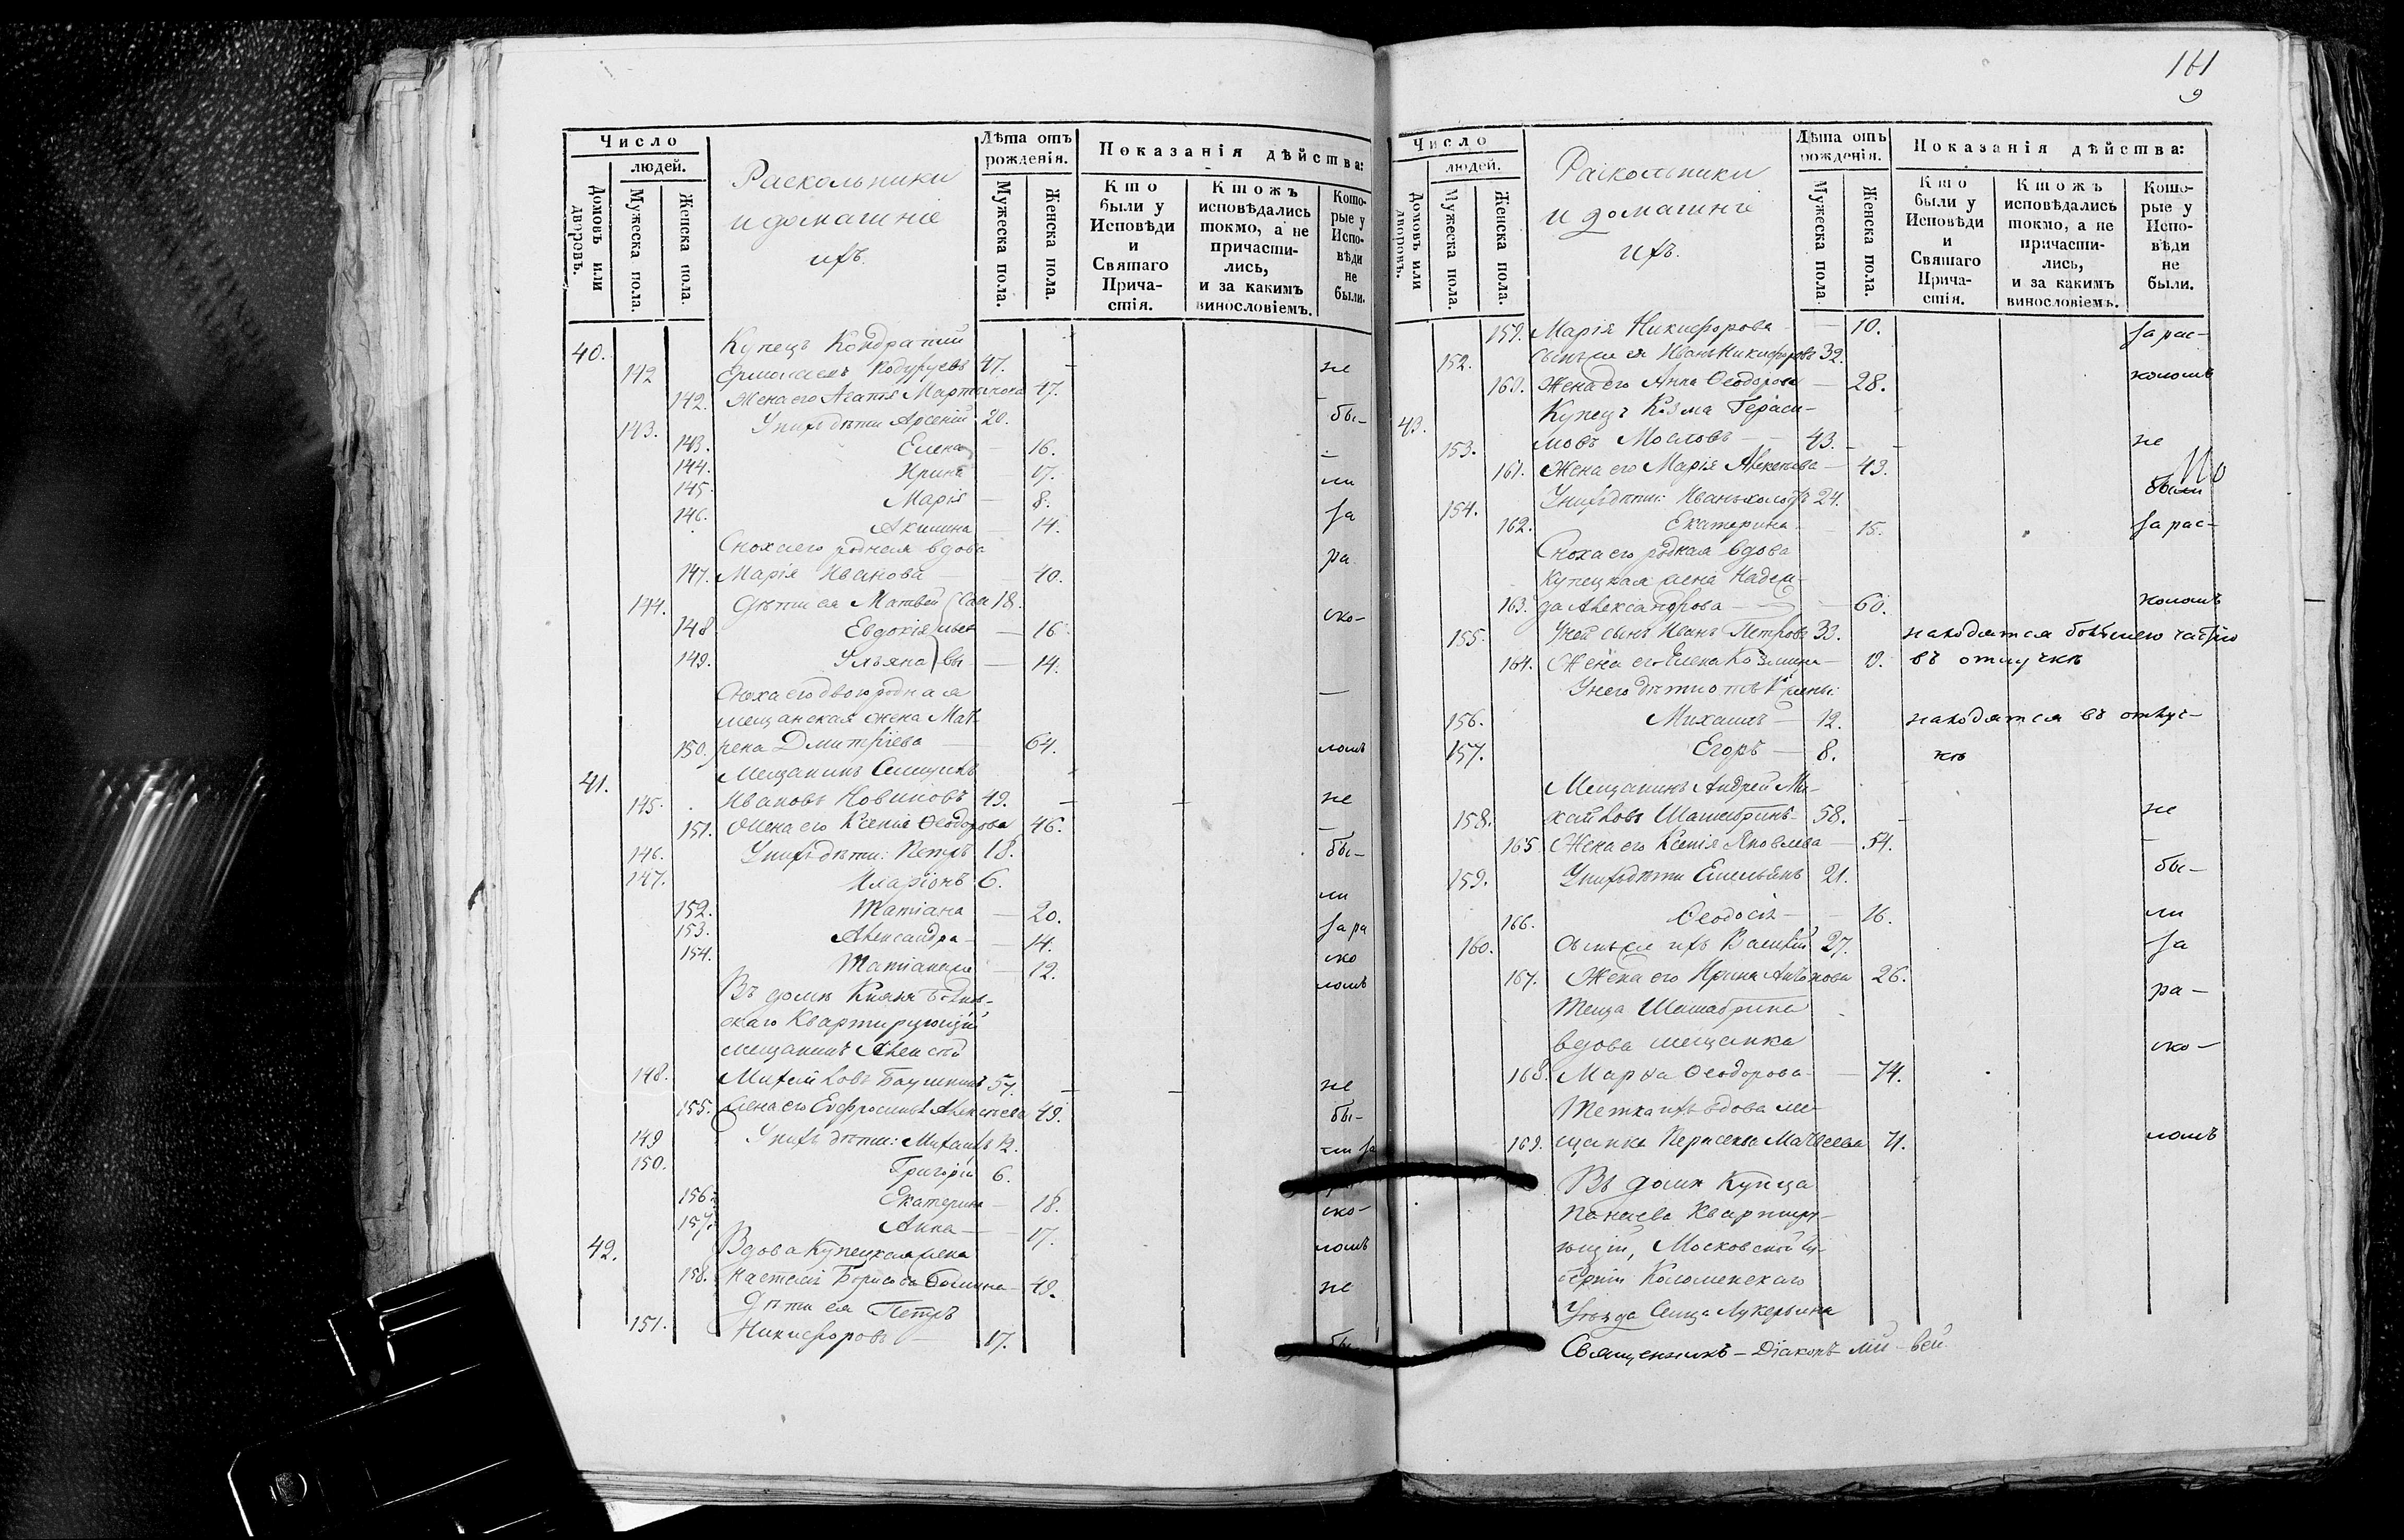 Число
людей.
Домовъ или дворовъ.
Мужеска пола.
Женска пола.
Раскольники
и домашніе
ихъ.
Лѣта отъ рожденія.
Мужеска пола.
Женска пола.
Показанія дѣйства:
Кто были у Исповѣди и Святаго Прича-стія.
Ктожъ исповѣдались токмо, а не причасти-лись, и за какимъ винословіемъ.
Кото-рые у Испо-вѣди не были.
40. Купецъ Кондратій
142 47. не
142. Жена его Агапія Мартынова 47.
143. У нихъ дѣти Арсеній 20. бы-
143. Елена 16.
144. Ирина 17.
145. Марія 8. ли
146. Акилина 14. за
Сноха его родная вдова
147. Марія Иванова 40. ра
144. Дѣти ея Матвей 18.
148 Евдокія 16 ско-
149. Ульяна 14.
Сноха его двоюродная
мещанская жена Мат-
150. рена Дмитріева 64. ломъ
41. Мещанинъ
145. Ивановъ Новиковъ 49. не
151. Жена его Ксенія Ѳеодорова 46.
146. У нихъ дѣти: Петръ 18. бы-
147. Иларіонъ 6. ли
152. Татіана 20.
153. Александра 14. за ра
154. Татіана 12. ско
Въ домѣ Князя
ломъ
скаго Квартирующій
мещанинъ Алексѣй
148. Михайловъ 57. не
155. Жена его Евфросинья Алексѣева 49. бы-
149 У нихъ дѣти: Михаилъ 12. ли за
150. Григорій 6.
156. Екатерина 18. ско-
157. Анна 17.
42. Вдова Купецкая жена ломъ
158. Настасія Борисова 49. не
Дѣти ея Петръ
151. Никифоровъ 17. бы
161
9
Число
людей.
Домовъ или дворовъ.
Мужеска пола.
Женска пола.
Раскольники
и домашніе
ихъ.
Лѣта отъ рожденія.
Мужеска пола.
Женска пола.
Показанія дѣйства:
Кто были у Исповѣди и Святаго Прича-стія.
Ктожъ исповѣдались токмо, а не причасти-лись, и за какимъ винословіемъ.
Кото-рые у Испо-вѣди не были.
159. Марія Никифорова 10. за рас-
152. сынъ ея Иванъ Никифоровъ 32.
160. Жена его Анна Ѳеодорова 28. коломъ
43. Купецъ Козма Гераси-
153. мовъ 43. не
161. Жена его Марія Алексѣева 43.
154. У нихъ дѣти: Иванъ холостъ 24. были
162. Екатерина 15. за рас-
Сноха его родная вдова
Купецкая жена Надеж-
163. да Александрова 60. коломъ
155. У ней сынъ Иванъ Петровъ 33. находятся большею частію
164. Жена его Елена Козмина въ отлучкѣ
У него дѣти
156. Михаилъ 12. находятся въ отлуч-
157. Егоръ 8. кѣ
Мещанинъ Андрей Ми-
158. хайловъ Шашабринъ 58. не
165 Жена его Ксенія Яковлева 54.
159. У нихъ дѣти Емельянъ 21. бы-
166. Ѳеодосія 16. ли
160. сынъ ихъ Василій 27. за
167. Жена его Ирина Антонова 26. ра-
Теща Шашабрина
вдова мещанка ско-
168. Марѳа Ѳеодорова 74.
Тетка ихъ вдова ме-
169. щанка Матвеева 71. ломъ
Въ домѣ Купца
Панаева Квартиру-
ющій, Московской Гу-
берніи Коломенскаго
Уѣзда Села
Священникъ – Діаконъ